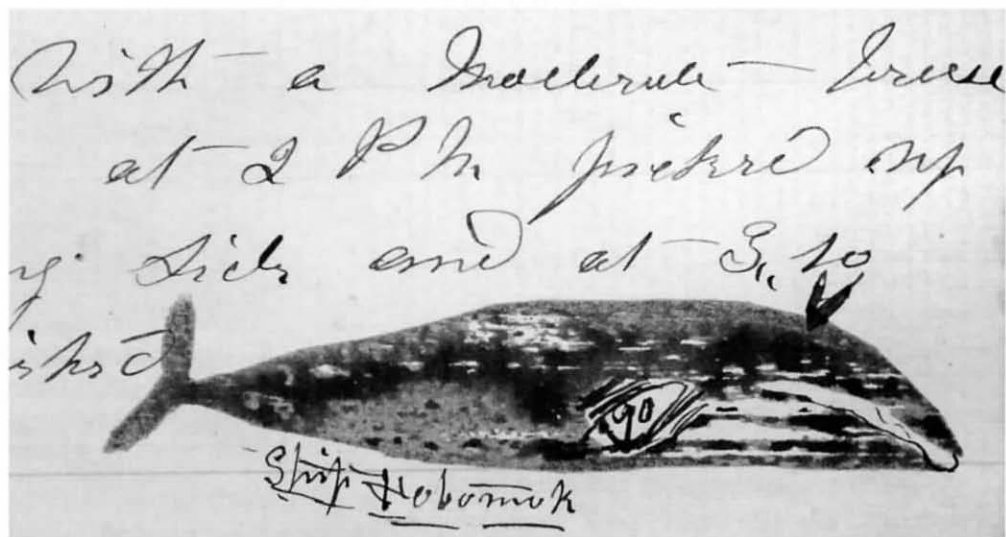 with a Moderate breese
at 2 P M picked up
g side and at 3,, 10
Ship Nobomok
40